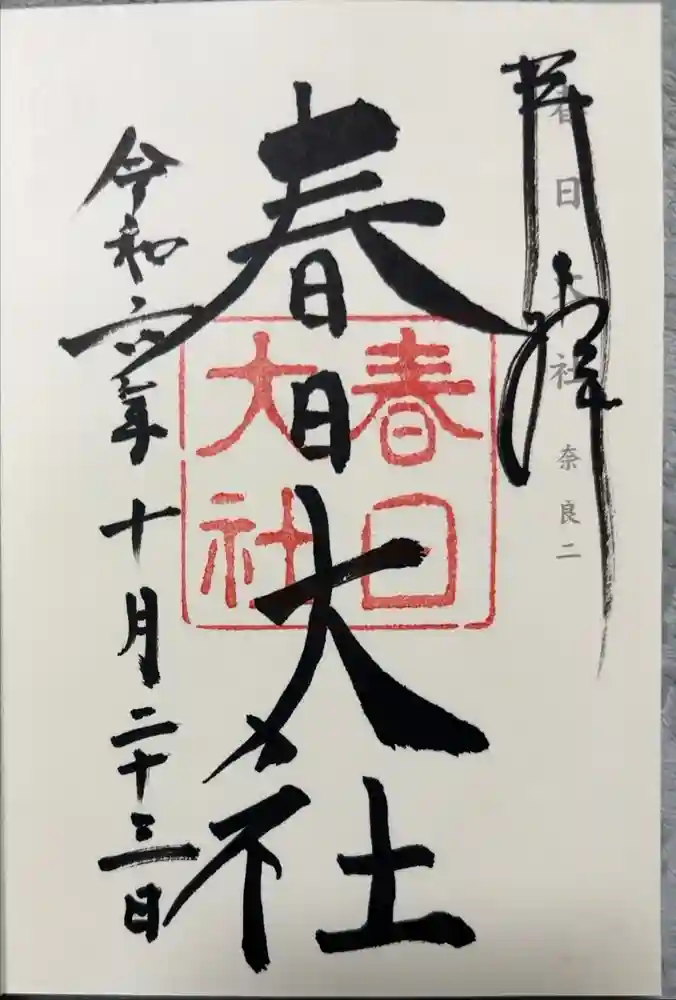 奉拝
春日大社 奈良二
春日大社
春日大社
令和六年十月二十三日